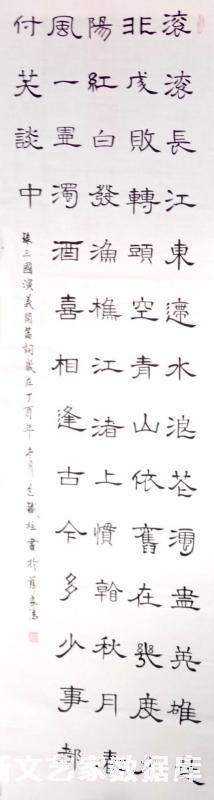 滚滚長江東逝水浪花淘盡英雄
非成敗轉頭空青山依舊在幾度
陽紅白發漁樵江渚上慣看秋月春
風一壺濁酒喜相逢古今多少事都
付笑談中
錄三國演義開篇詞歲在丁酉年
文艺家数据库